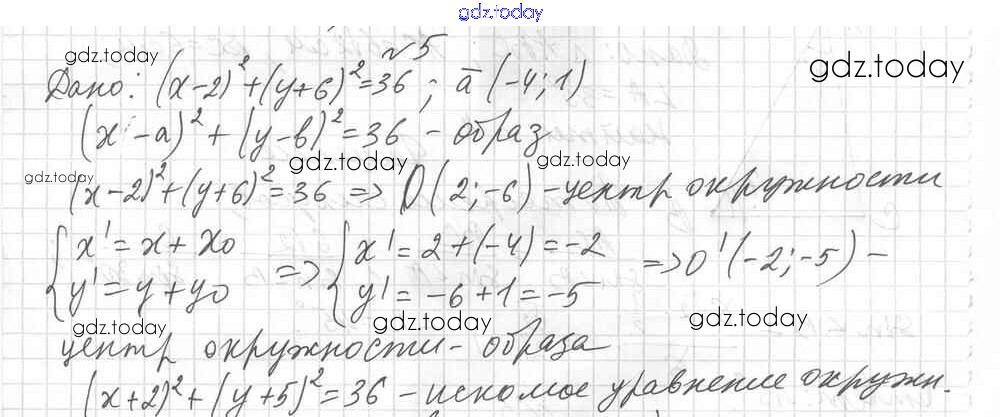 gdz.today
№5
gdz.today
gdz.today
Дано: (x-2)²+(y+6)²=36; a̅(-4;1)
(x-a)²+(y-b)²=36 - образ
gdz.today
gdz.today
gdz.today
(x-2)²+(y+6)²=36 => O(2;-6) - центр окружности
{x'=x+x₀ => {x'=2+(-4)=-2 => O'(-2;-5) -
y'=y+y₀ y'=-6+1=-5
gdz.today
gdz.today
gdz.today
центр окружности - образа
(x+2)²+(y+5)²=36 - искомое уравнение окружн.